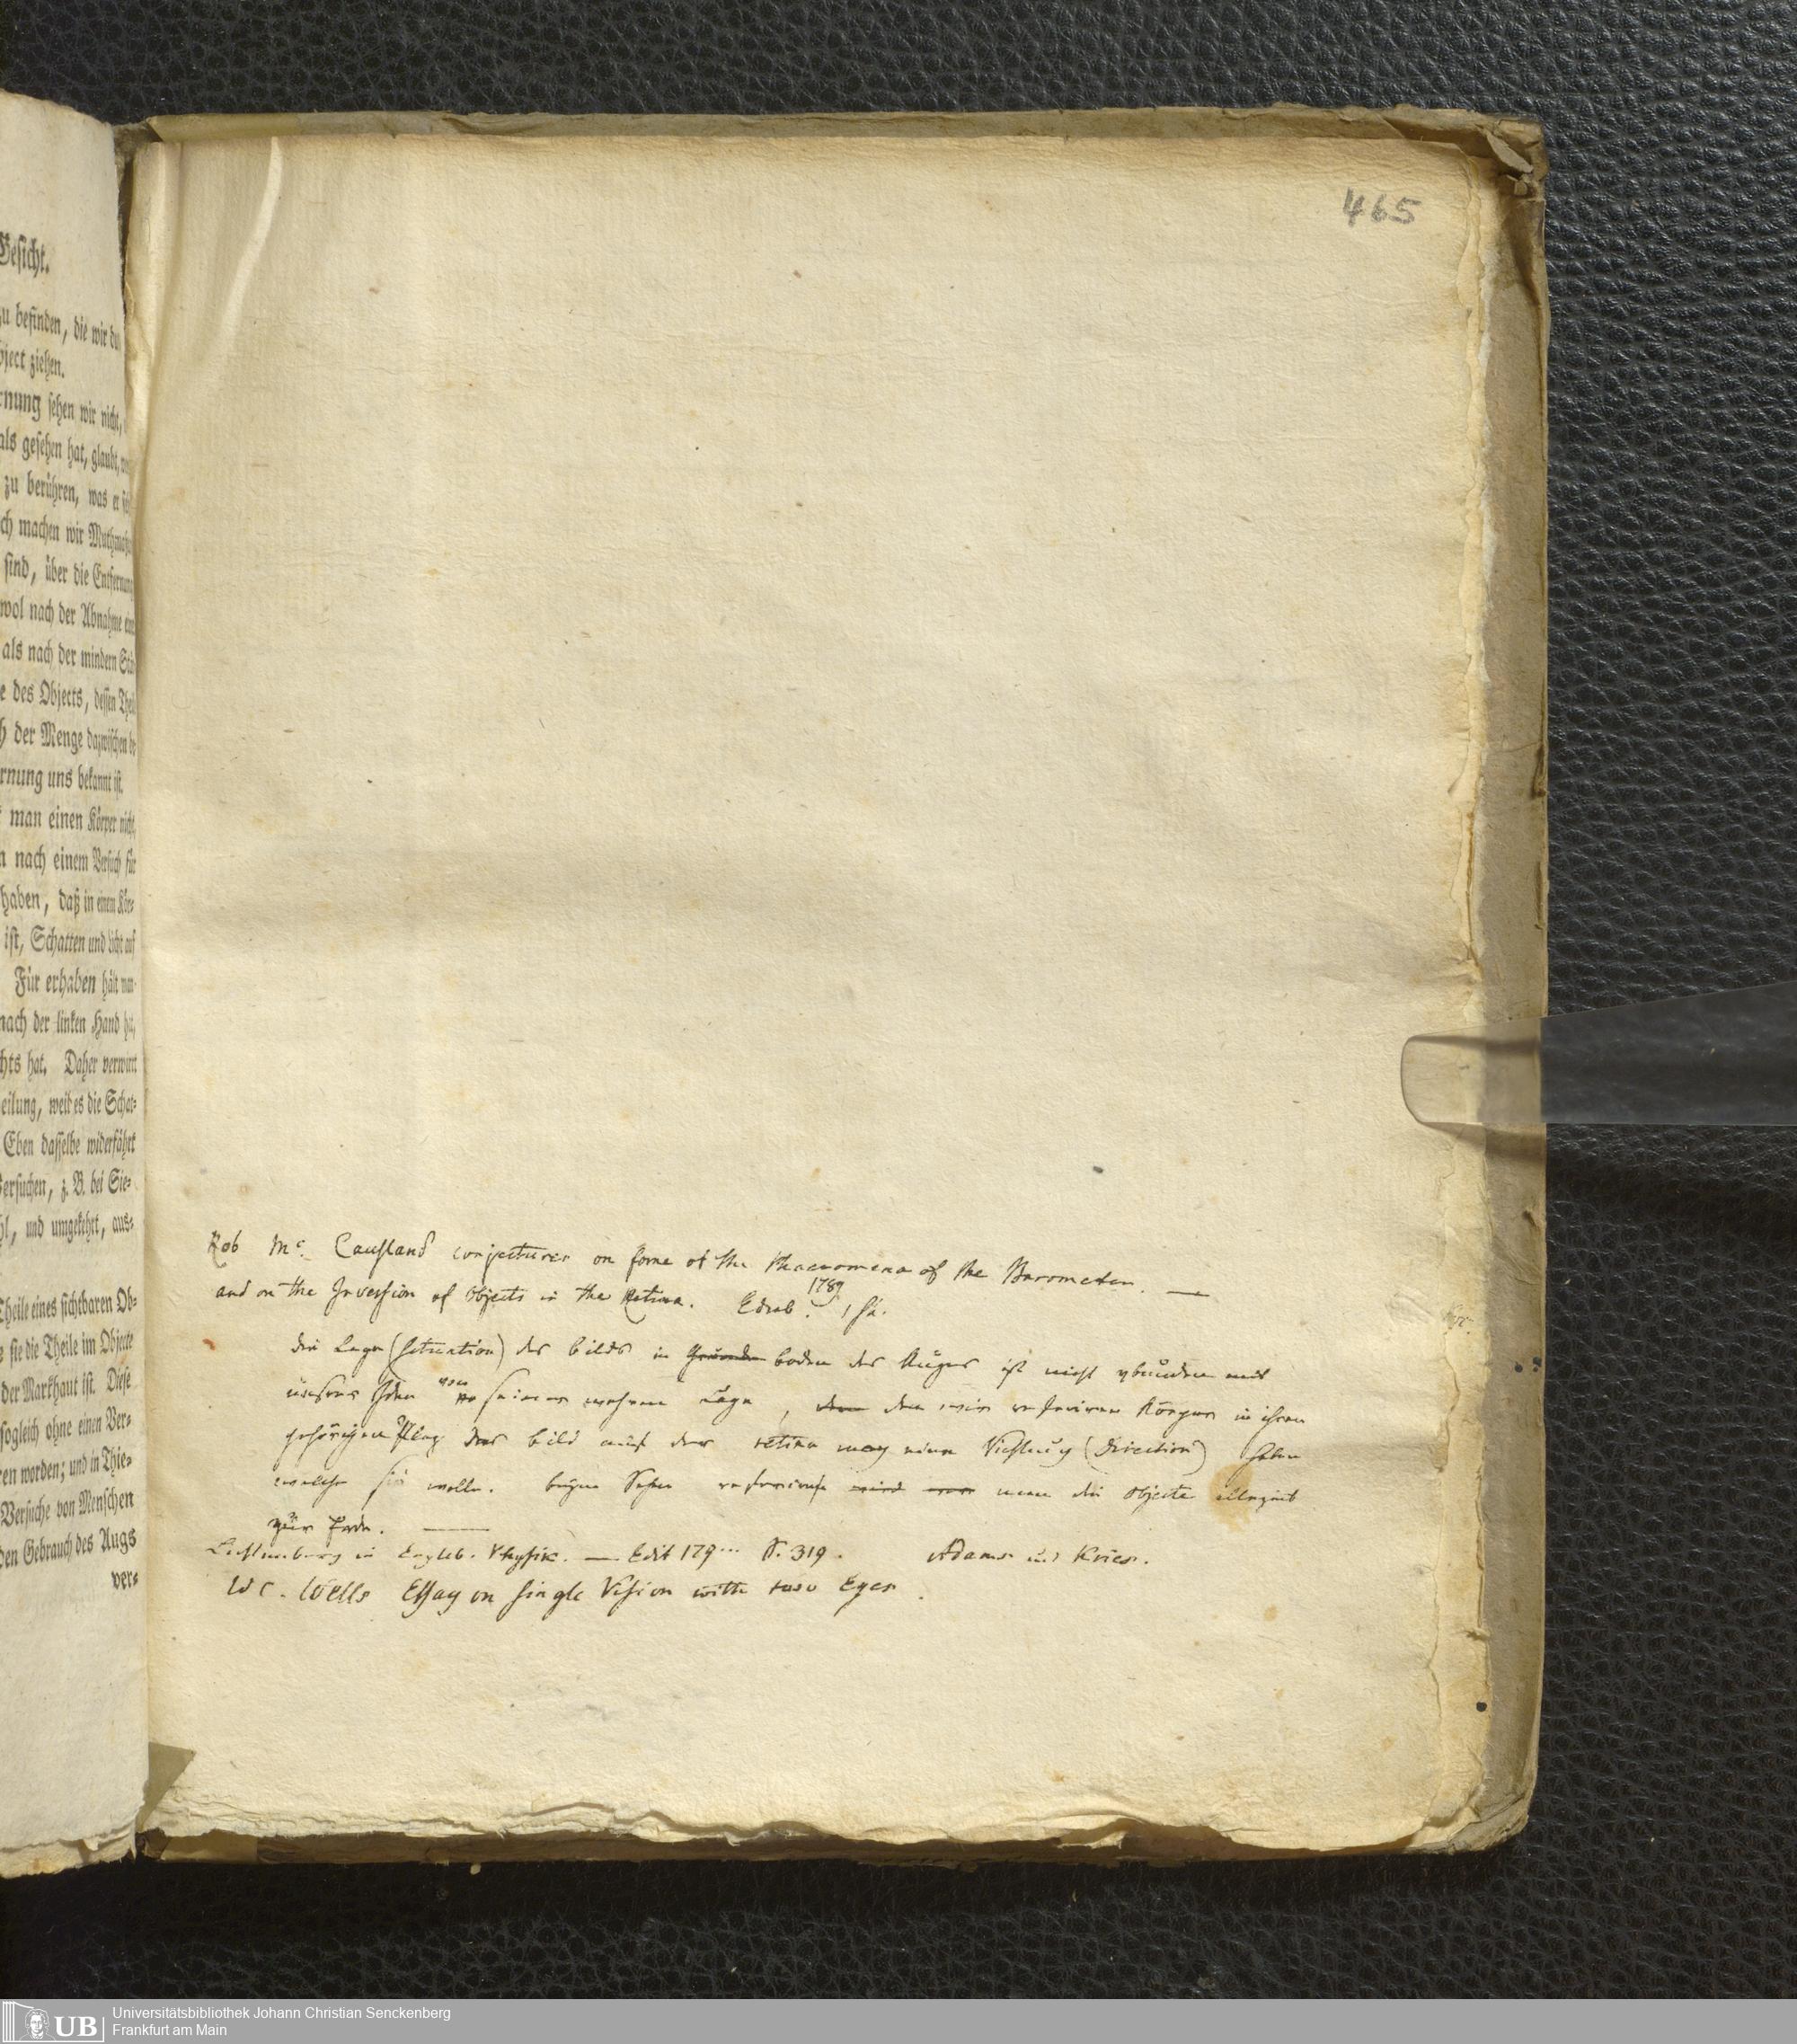 Gesicht.
zu befinden, die wir du
bject ziehen.
rnung sehen wir nicht,
als gesehen hat, glaubt,
zu berühren, was er
ch machen wir Muthmaß
sind, über die Entfernung
wol nach der Abnahme
als nach der mindern
e des Objects, dessen Theil
h der Menge dazwischen be
rnung uns bekannt ist.
man einen Körper nicht,
n nach einem Versuch für
haben, daß in einem Kör=
ist, Schatten und Licht auf
Für erhaben hält man
nach der linken Hand hin,
chts hat. Daher verwirrt
eilung, weil es die Schat=
Eben dasselbe widerfährt
Versuchen, z. B. bei Sie=
hl, und umgekehrt, aus=
Theile eines sichtbaren Ob=
sie die Theile im Objecte
der Markhaut ist. Diese
sogleich ohne einen Ver=
ren worden; und in Thie=
Versuche von Menschen
den Gebrauch des Augs
ver=
465
Rob Mc. Causland conjectures on some of the Phaenomena of the Barometer. —
and on the Inversion of Objects in the Retina. Edinb. 1789
die Lage (situation) des bilds in Grunde boden des Auges ist nicht gebunden mit
unsrer Idee von seiner wahren Lage, dem den wir referiren Körper in ihren
gehörigen Plaz das bild auf der retina mag eine Richtung (Direction) haben
welche sie wolle. beym Sehen man die Objecte allezeit
zur Erde. —
Lichtenberg in Erxleb. Physik. — Edit 179... S. 319. Adams und Kries.
W C. Wells Essay on single Vision with two Eyes.
UB
Universitätsbibliothek Johann Christian Senckenberg
Frankfurt am Main